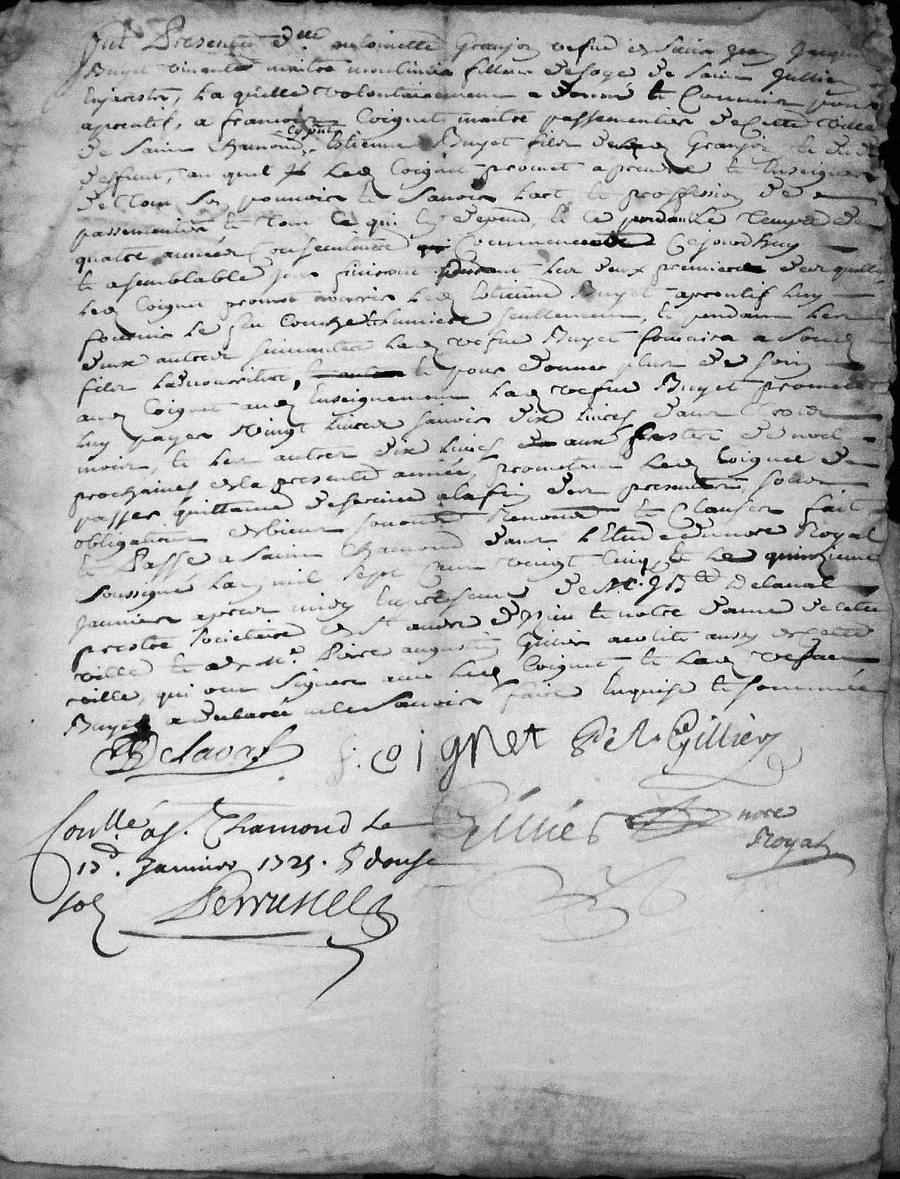 fut Presente d.lle antoinette Granjon vefve de Sieur Jean Jacques
Buyet vivant maitre moulinier filleur de soye de Saint Jullien
En jarests, La quelle volontairement a donné et Commis pour
aprentif, a françois Coignet maitre passementier de cette ville
cy pnt
de Saint Chamond, Etienne Buyet fils de lad Granjon et dud
deffunt, au quel led Coignet promet aprendre et Enseigner
de tout son pouvoir et Savoir L'art et proffession de
passementier et tout ce qui En depend, et ce pendant le temps de
quatre années consecutives Commencées Cejourdhuy
et a semblable jour finiront pendant les deux premieres desquelles
led Coignet promet nourrir led Etienne Buyet aprentif luy
fournir le feu Couche et lumiere seullement, et pendant les
deux autres suivantes lad vefve Buyet fournira a sond
fils la nourriture, et pour donner plus de soin
aud Coignet aud Enseignement lad vefve Buyet promet
luy payer vingt livres savoir dix livres dans trois
mois, et les autres dix livres aux festes de noel
prochaines de la presente année, promettant led Coignet de
passer quittance a la fin des presentes sous
obligation de biens soumis Renoncé et Clauses fait
et Passé a Saint Chamond dans L'Etude du nore Royal
soussigné La mil sept cent vingt cinq et le quinzieme
Janvier apres midy En presence de Mre J B Delaval
prestre societaire de St andre et notre dame de cette
ville et de Mre Piere augustin Gillier acolite aussy de cette
ville, qui ont signer avec led Coignet et lad vefve
Buyet a declaré ne le Savoir faire Enquise et sommée
Delaval f. coignet P. A. Gillier
Gillier nore
Royal
Conllé a St. Chamond Le
15e. Janvier 1725. R douse
sols Perrussel